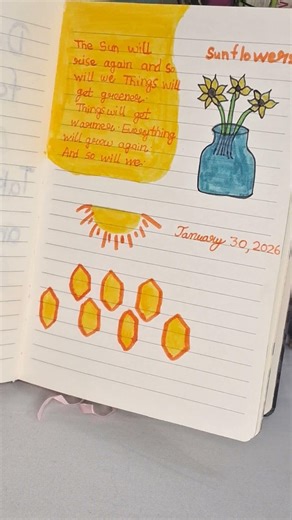 The Sun will
rise again and so
will we. Things will
get greener.
Things will get
warmer. Everything
will grow again.
And so will we.
Sunflowers
January 30, 2026